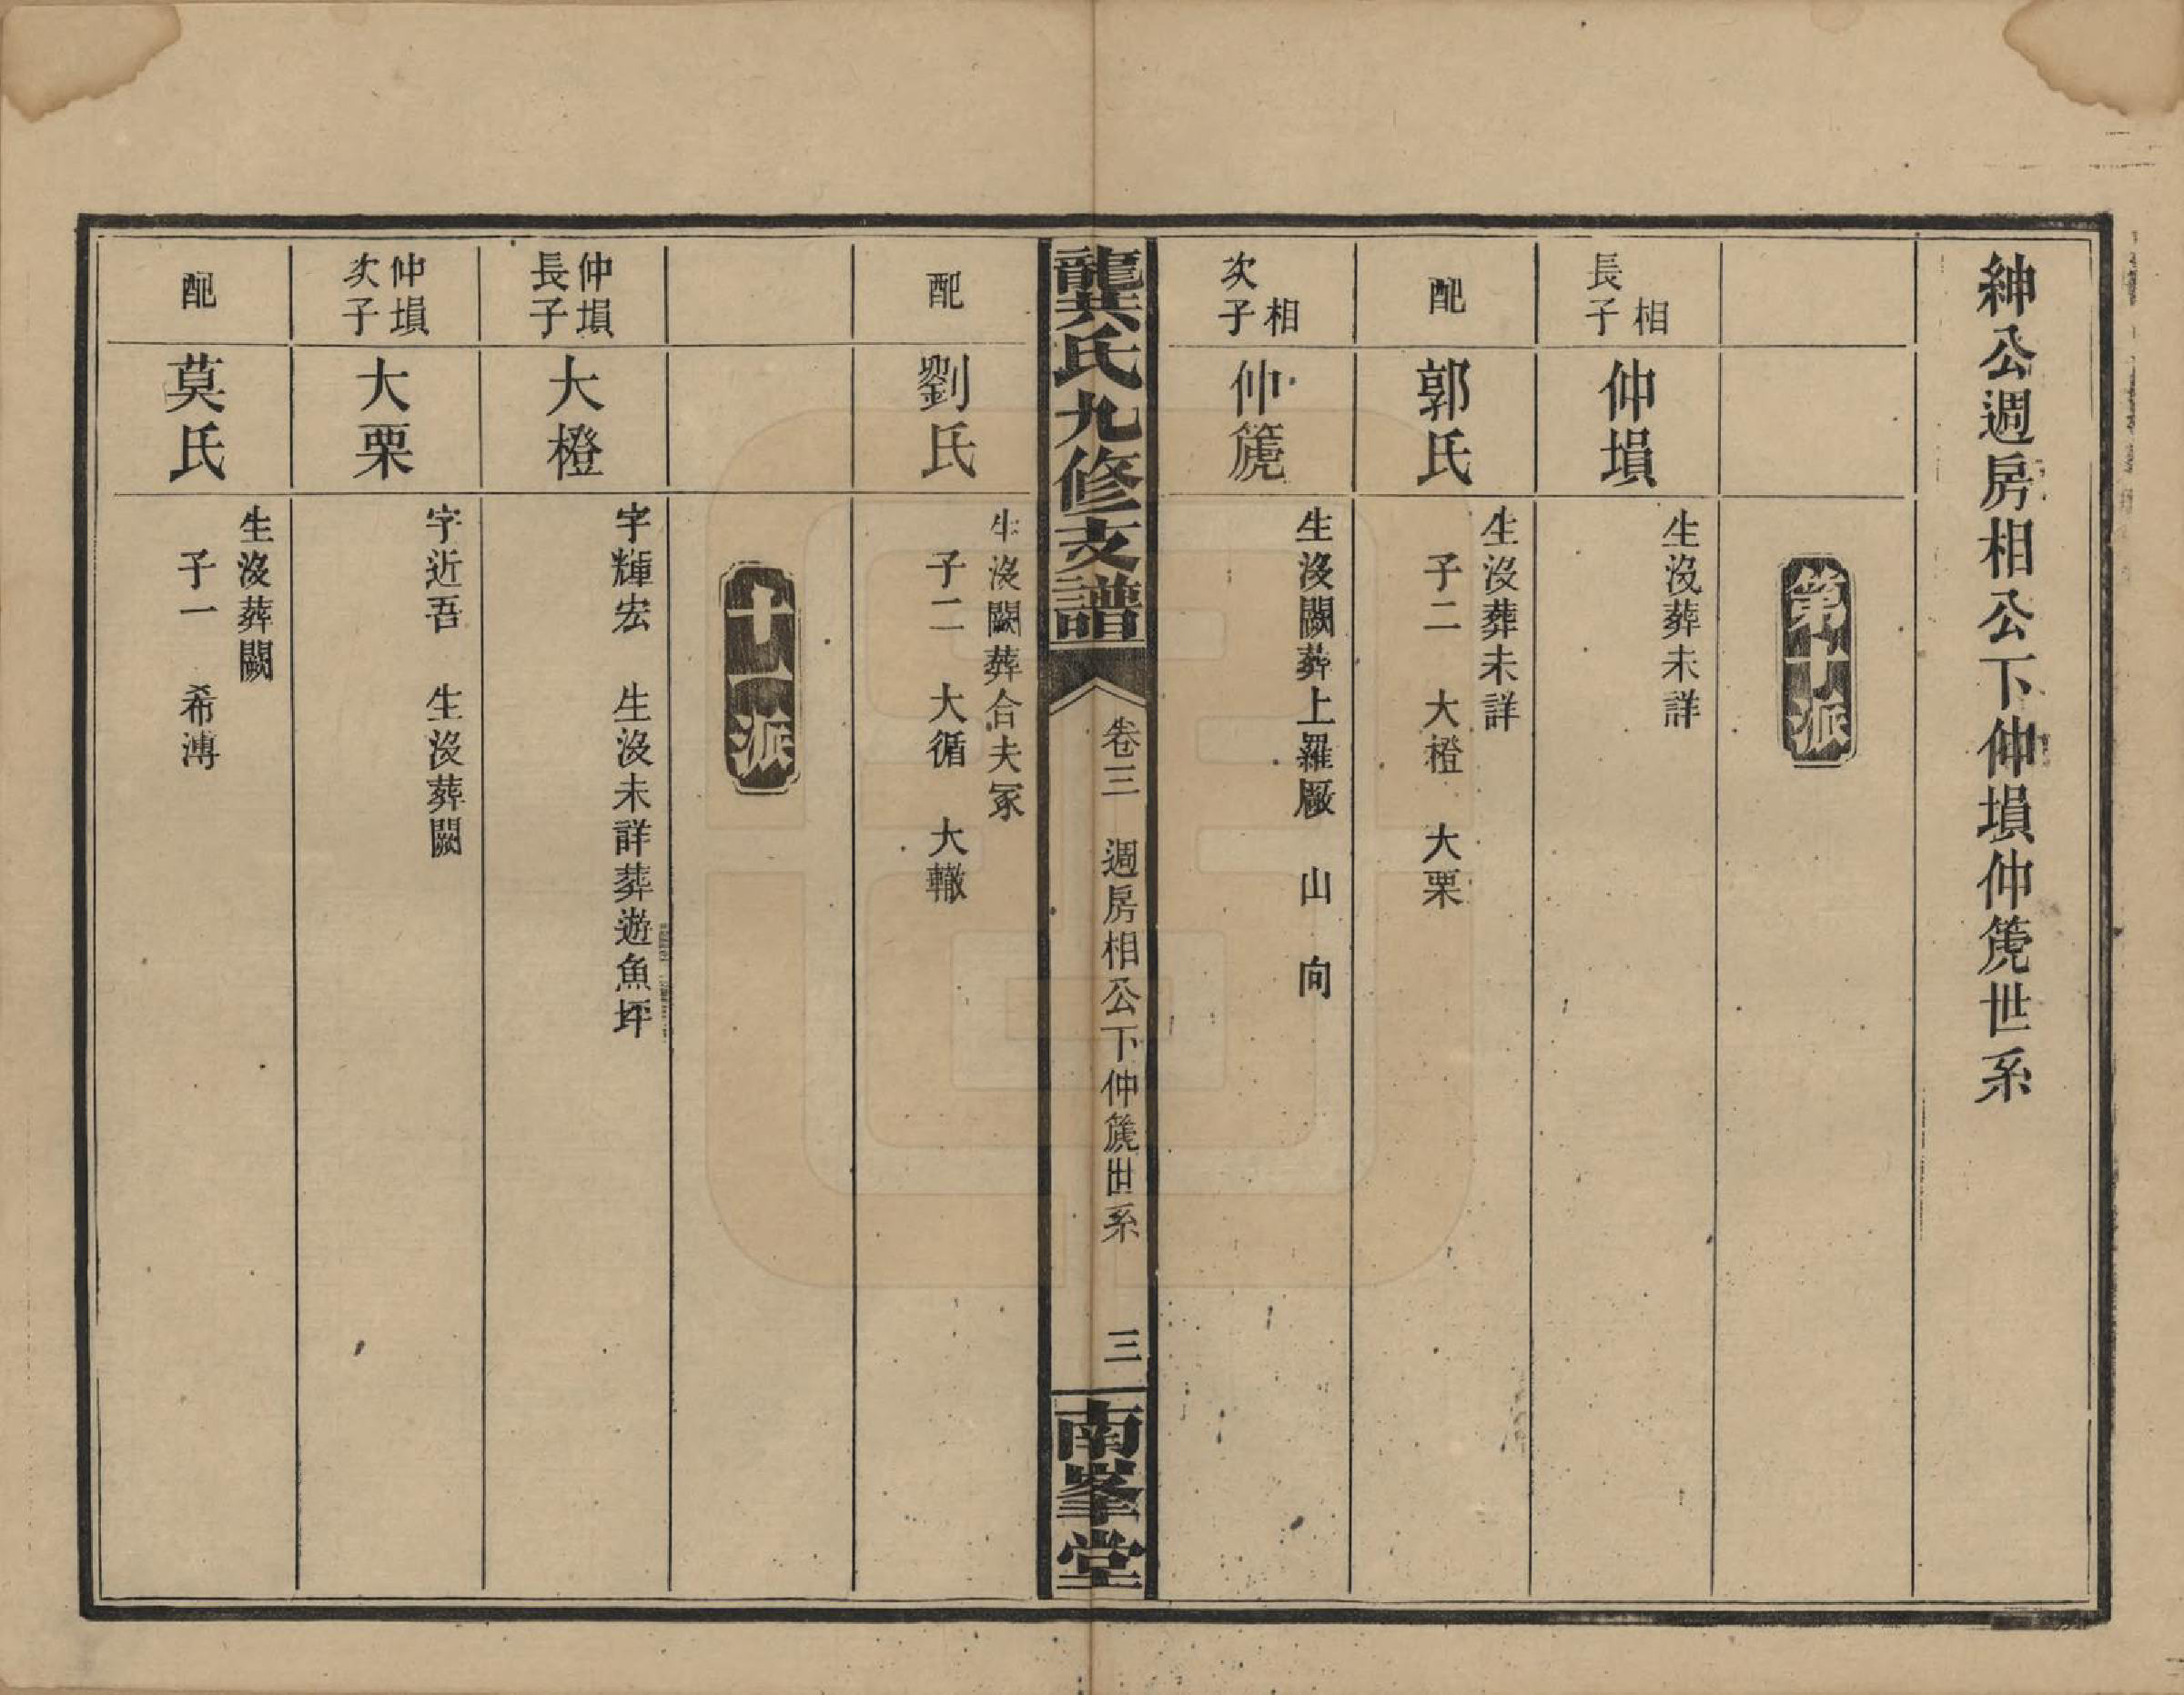 紳公週房相公下仲塤仲篪世系
第十派
相長子
仲塤
生沒葬未詳
配
郭氏
生沒葬未詳
子二　大橙　大栗
相次子
仲篪
生沒闕葬上羅廠　山　向
龍共氏九修支譜
卷三　週房相公下仲篪世系　三
南峯堂
配
劉氏
生沒闕葬合夫冢
子二　大循　大轍
十一派
仲塤長子
大橙
字輝宏　生沒未詳葬遊魚坪
仲塤次子
大栗
字近吾　生沒葬闕
配
莫氏
生沒葬闕
子一　希溥